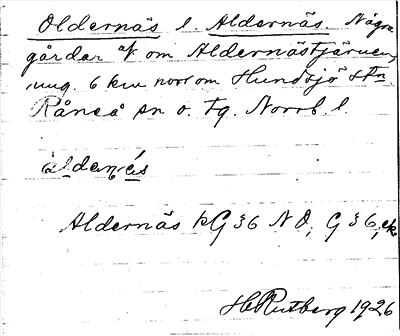 Oldernäs l. Aldernäs. Några
gårdar af om Aldernästjärnen,
ung. 6 km norr om Hundsjö stn.
Råneå sn o. tg. Norrb. l.
äldenäs
Aldernäs kG 36 NO, G 36, ek
HRutberg 1926